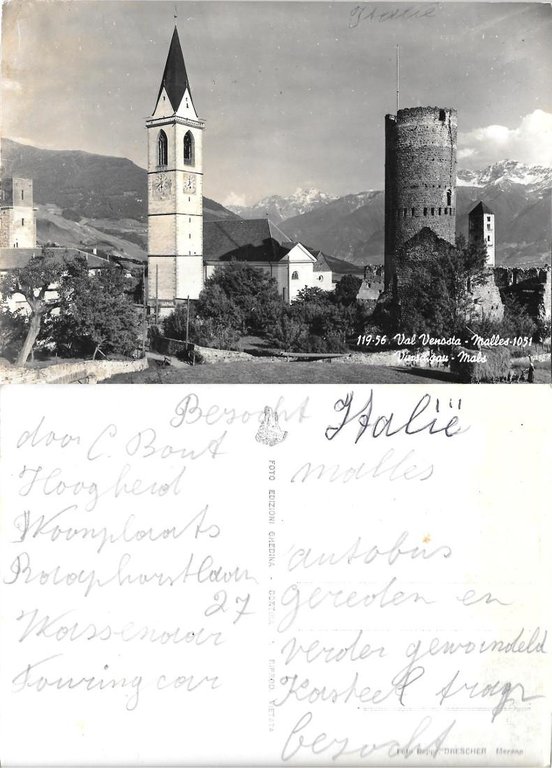 Italie
119-56 Val Venosta - Malles-1051
Vinschgau - Mals
Bezocht
door C. Bout
Hoogheid
Woonplaats
27
Wassenaar
Touring car
FOTO EDIZIONI GHEDINA - CORTINA - RIPROD. VIETATA
Italië
malles
autobus
gereden en
verder gewandeld
Kasteel
bezocht
Foto DRESCHER Merano